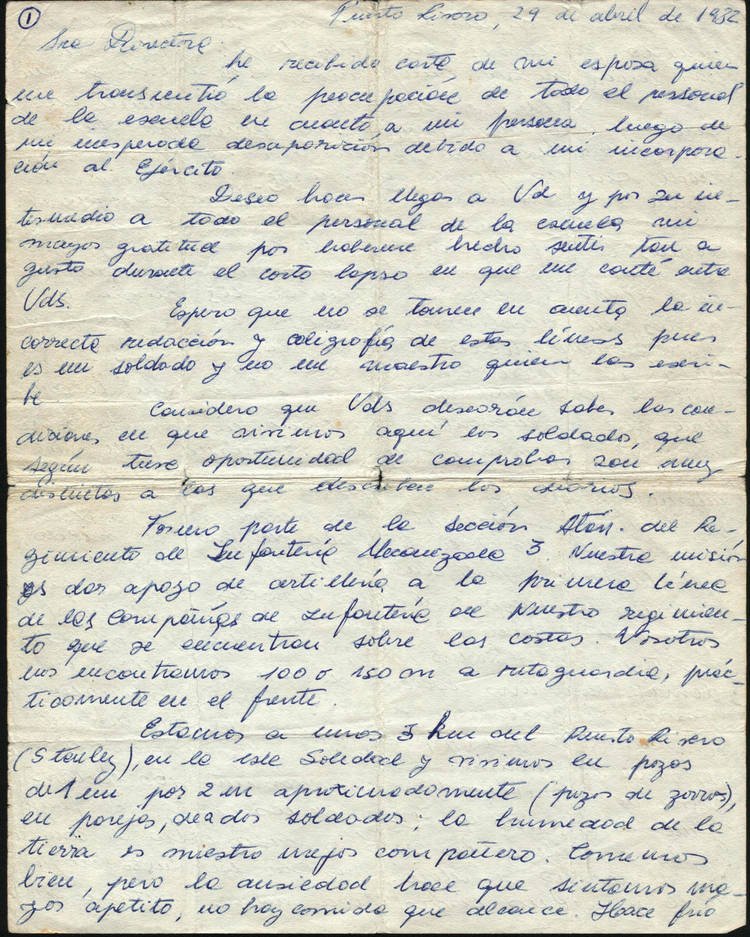 1
Puerto Rivero, 29 de abril de 1982
Sra Directora
he recibido carta de mi esposa quien
me transmitió la preocupación de todo el personal
de la escuela en cuanto a mi persona, luego de
mi inesperada desaparición debido a mi incorpora-
ción al Ejército.
Deseo hacer llegar a Vd y por su in-
termedio a todo el personal de la escuela mi
mayor gratitud por haberme hecho sentir tan a
gusto durante el corto lapso en que me conté entre
Vds.
Espero que no se tomen en cuenta la in-
correcta redacción y caligrafía de estas líneas pues
es un soldado y no un maestro quien las escri-
be
Considero que Vds desearán saber las con-
diciones en que vivimos aquí los soldados, que
según tuve oportunidad de comprobar son muy
distintas a las que describen los diarios.
Formo parte de la Sección Atán. del Re-
gimiento de Infantería Mecanizada 3. Nuestra misión
es dar apoyo de artillería a la primera línea
de las Compañías de Infantería de Nuestro regimien-
to que se encuentran sobre las costas. Nosotros
nos encontramos 100 o 150 m a retaguardia, prác-
ticamente en el frente.
Estamos a unos 3 km del Puerto Rivero
(Stanley), en la isla Soledad y vivimos en pozos
de 1 m por 2 m aproximadamente (pozos de zorros),
en parejas, de a dos soldados; la humedad de la
tierra es nuestro mejor compañero. Comemos
bien, pero la ansiedad hace que sintamos ma-
yor apetito, no hay comida que alcance. Hace frío